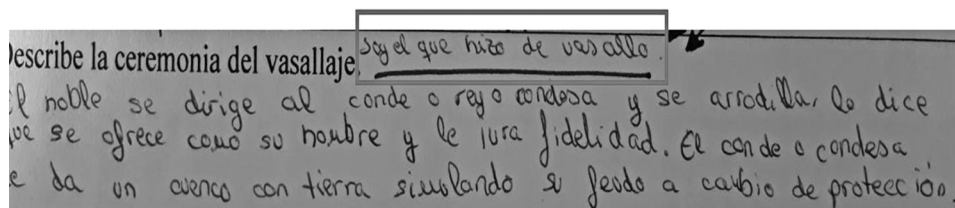 Describe la ceremonia del vasallaje. soy el que hizo de vasallo.
El noble se dirige al conde o rey o condesa y se arrodilla, le dice
que se ofrece como su hombre y le jura fidelidad. El conde o condesa
le da un cuenco con tierra simulando su feudo a cambio de protección.